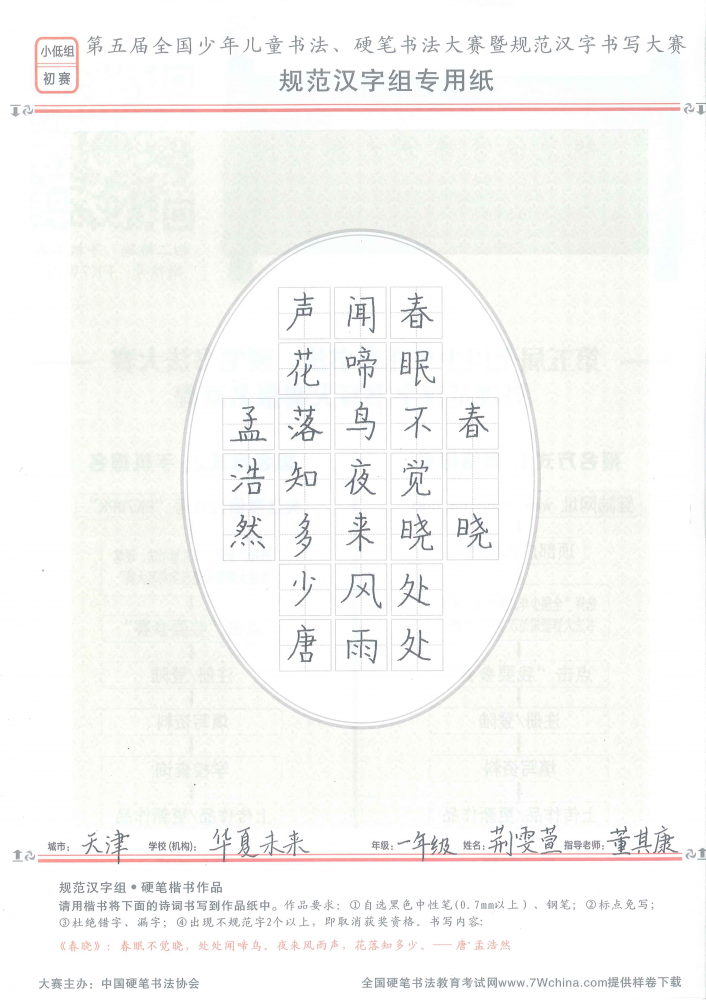 小低组
初赛
第五届全国少年儿童书法、硬笔书法大赛暨规范汉字书写大赛
规范汉字组专用纸
春晓
春眠不觉晓处处
闻啼鸟夜来风雨
声花落知多少唐
孟浩然
城市：天津 学校(机构)：华夏未来 年级：一年级 姓名：荆雯萱 指导老师：董其康
规范汉字组·硬笔楷书作品
请用楷书将下面的诗词书写到作品纸中。作品要求：①自选黑色中性笔(0.7mm以上)、钢笔；②标点免写；
③杜绝错字、漏字；④出现不规范字2个以上，即取消获奖资格。书写内容：
《春晓》：春眠不觉晓，处处闻啼鸟。夜来风雨声，花落知多少。——唐·孟浩然
大赛主办：中国硬笔书法协会 全国硬笔书法教育考试网www.7Wchina.com提供样卷下载